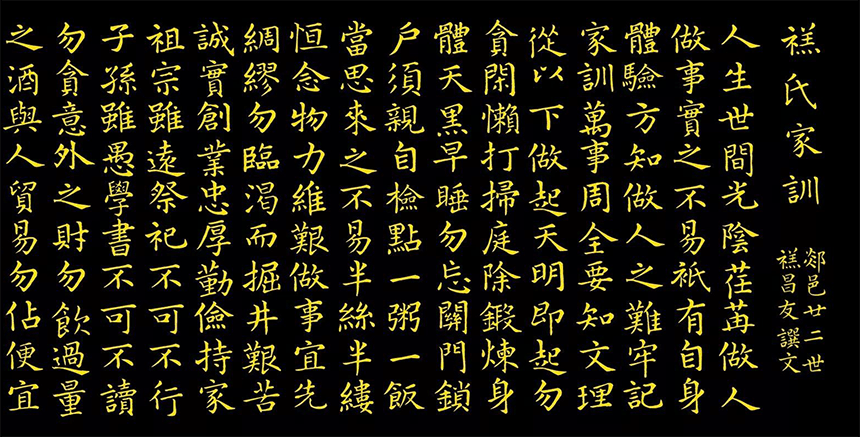 禚氏家訓
郯邑廿二世
禚昌友譔文
人生世間光陰荏苒做人
做事實之不易祇有自身
體驗方知做人之難牢記
家訓萬事周全要知文理
從以下做起天明即起勿
貪閑懶打掃庭除鍛煉身
體天黑早睡勿忘關門鎖
戶須親自檢點一粥一飯
當思來之不易半絲半縷
恒念物力維艱做事宜先
綢繆勿臨渴而掘井艱苦
誠實創業忠厚勤儉持家
祖宗雖遠祭祀不可不行
子孫雖愚學書不可不讀
勿貪意外之財勿飲過量
之酒與人貿易勿佔便宜